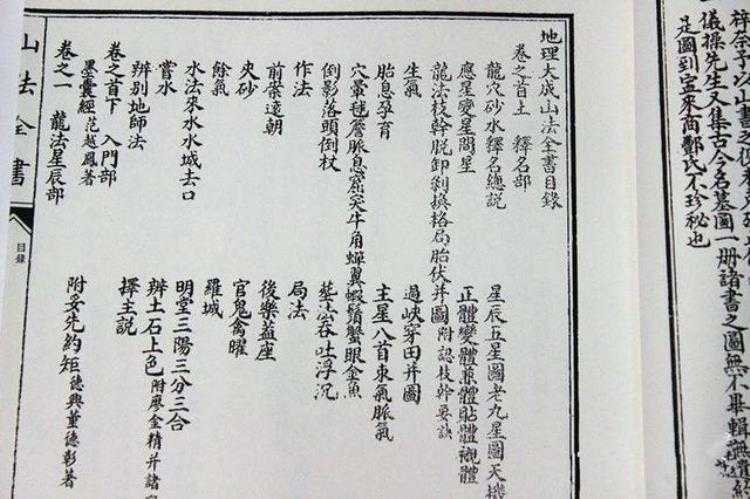 儀操先生又集古今名墓圖一冊諸書之圖無不畢輯
是圖到宜來商鄭氏不珍秘也
地理大成山法全書目錄
卷之首上 釋名部
龍穴砂水釋名總説 星辰五星圖老九星圖天機
應星變星間星 正體變體兼體貼體襯體
龍法枝幹脫卸剝換格局胎伏并圖附認枝幹要訣
生氣 過峽穿田并圖
胎息孕育 主星八首束氣脈氣
穴暈毬簷脈息窟突牛角蟬翼蝦鬚蟹眼金魚
倒影落頭倒杖 葬法吞吐浮沉
作法 局法
前案遠朝 後樂蓋座
夾砂 官鬼禽曜
餘氣 羅城
水法來水水城去口 明堂三陽三分三合
嘗水 辨土石上色附廖金精并諸
辨別地師法 擇主說
卷之首下 入門部
墨囊經范越鳳著 附妥先約矩德興董德彰著
卷之一 龍法星辰部
山法全書 目錄